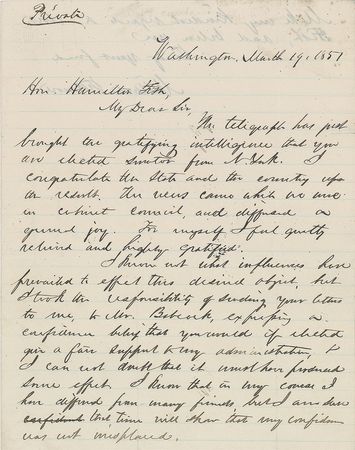 Private
Washington, March 19, 1851
Hon Hamilton Fish
My Dear Sir,
The telegraph has just
brought the gratifying intelligence that you
are elected Senator from N. York. I
congratulate the State and the country upon
the result. The news came while we were
in cabinet council, and diffused a
general joy. For myself I feel greatly
relieved and highly gratified.
I know not what influences have
prevailed to effect this desired object, but
I took the responsibility of sending your letter
to me, to Mr. Babcock, expressing a
confidence that you would if elected
give a fair support to my administration, &
I can not doubt that it must have produced
some effect. I know that in my course I
have differed from many friends, but I am sure
confident that time will show that my confidence
was not misplaced.